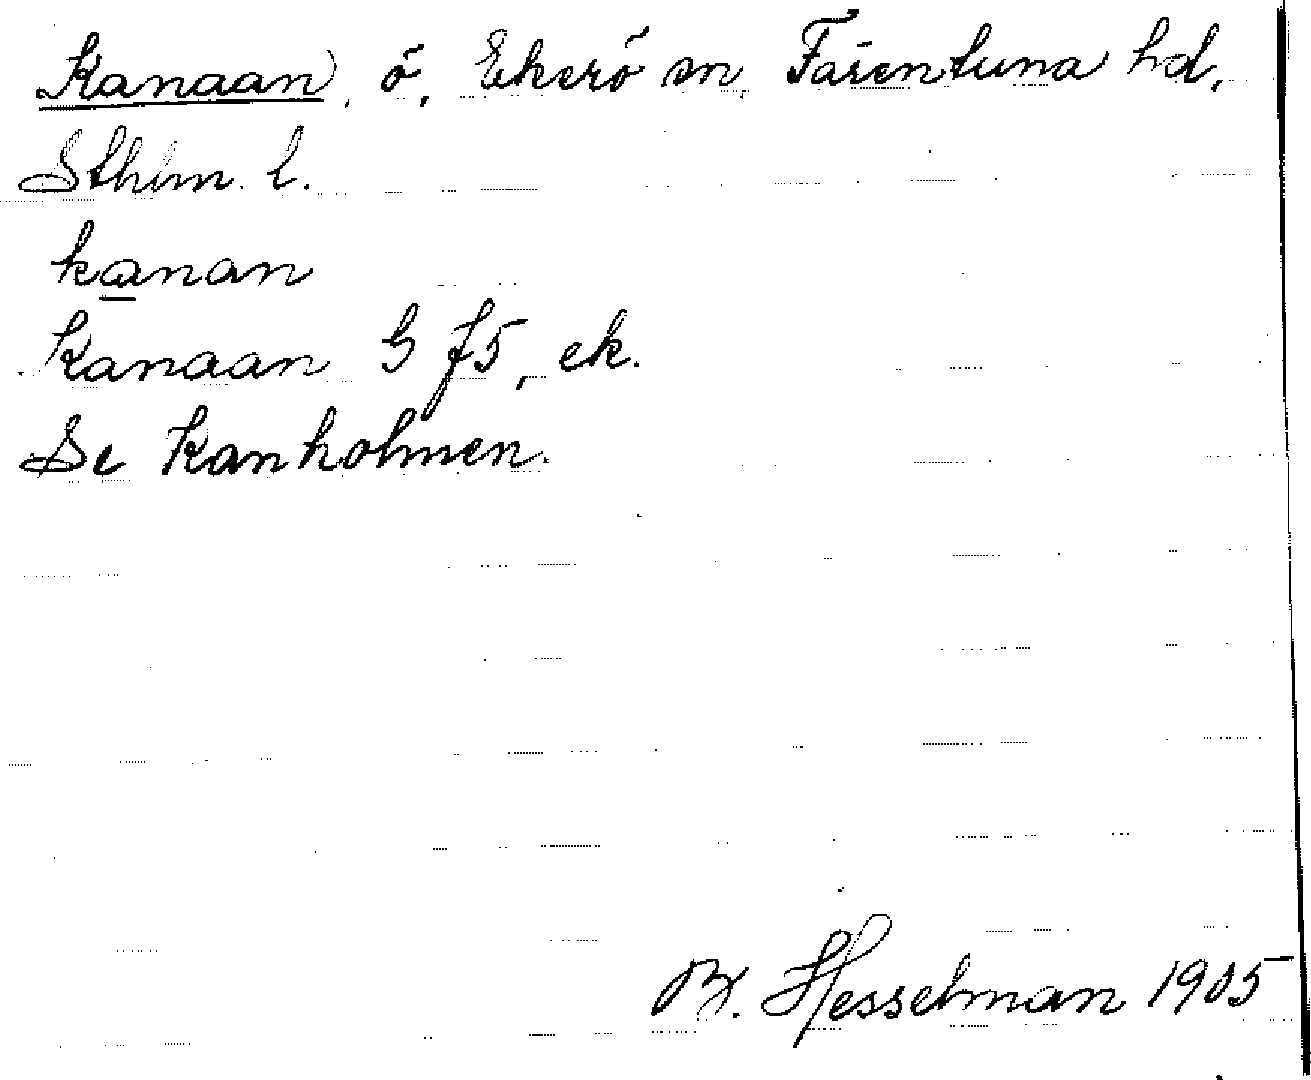 Kanaan, ö, Ekerö sn, Färentuna hd,
Sthlm. l.
kanan
Kanaan G f5, ek.
Se Kanholmen.
B. Hesselman 1905